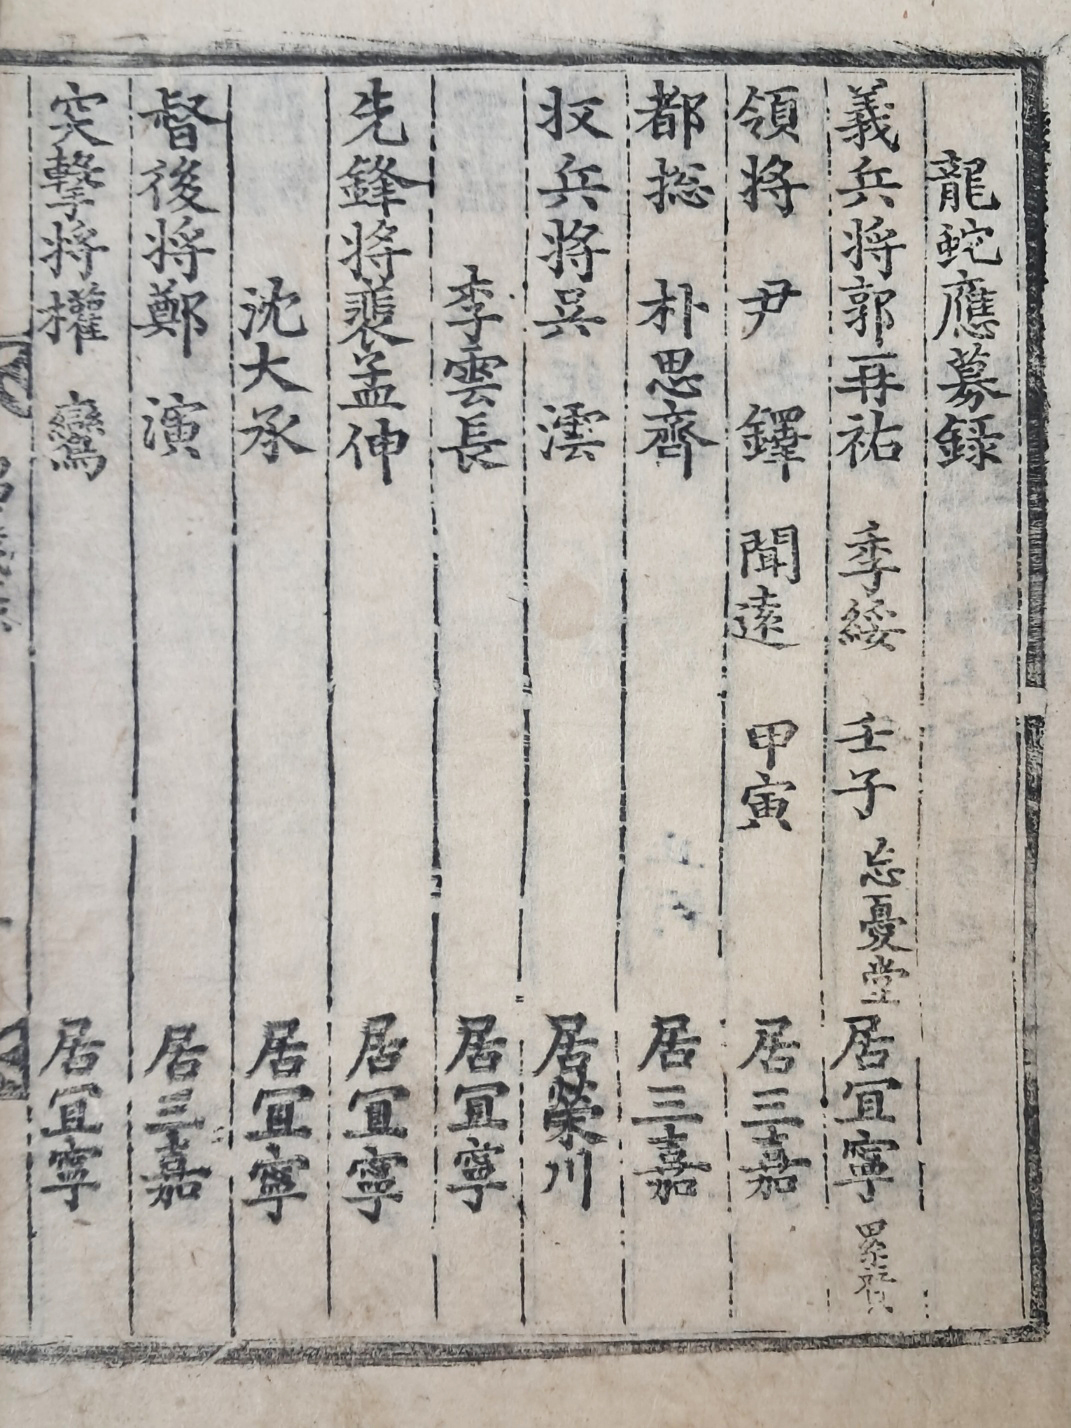 龍蛇應募錄
義兵將郭再祐 季綏 壬子 忘憂堂 居宜寧
領將 尹 鐸 聞遠 甲寅 居三嘉
都摠 朴思齊 居三嘉
収兵將吳 澐 居榮川
李雲長 居宜寧
先鋒將裴孟伸 居宜寧
沈大承 居宜寧
督後將鄭 演 居三嘉
突擊將權 鸞 居宜寧